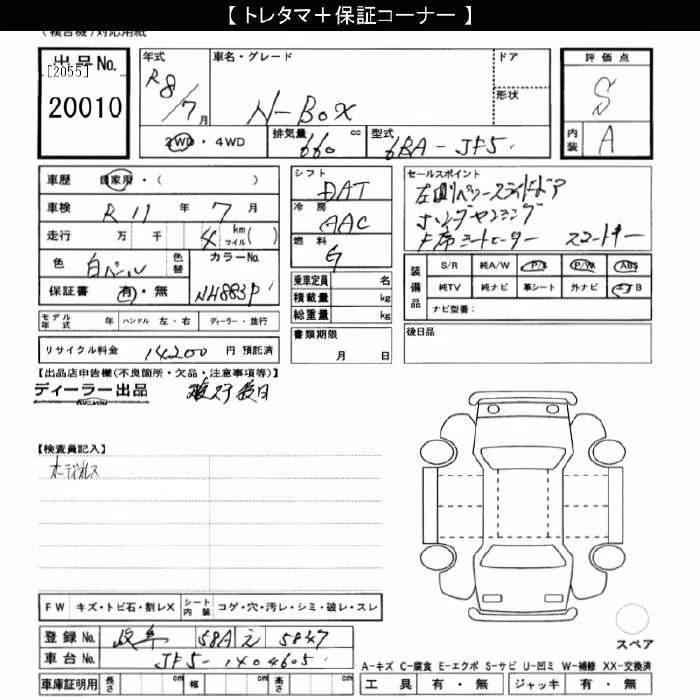 【 トレタマ＋保証コーナー 】
(複合機)対応用紙
出品No. [2055] 20010
年式 R8/7月
車名・グレード N-BOX
ドア
形状
評価点 S
内装 A
2WD・4WD
排気量 660 cc
型式 6BA-JF5
車歴 自家用・( )
車検 R11年7月
走行 万 千 4 km マイル( )
色 白パール
色替
カラーNo. NH883P
保証書 有・無
シフト DAT
冷房 AAC
燃料 G
乗車定員 名
積載量 kg
総重量 kg
セールスポイント
左側パワースライドドア
ホンダセンシング
F席シートヒーター スマートキー
装備品
S/R 純A/W P/S P/W ABS
純TV 純ナビ 革シート 外ナビ エアB
ナビ型番：
モデル年式 年 ハンドル 左・右 ディーラー・並行
書類期限 月 日
後日品
リサイクル料金 14200 円 預託済
【出品店申告欄(不良箇所・欠品・注意事項等)】
ディーラー出品
【検査員記入】
オーディオレス
FW キズ・トビ石・割レX シート内装 コゲ・穴・汚レ・シミ・破レ・スレ
登録No. 岐阜 58A え 5847
車台No. JF5-1404605
スペア
A-キズ C-腐食 E-エクボ S-サビ U-凹ミ W-補修 XX-交換済
車庫証明用 長さ cm 幅 cm 高さ cm
工具 有・無 ジャッキ 有・無